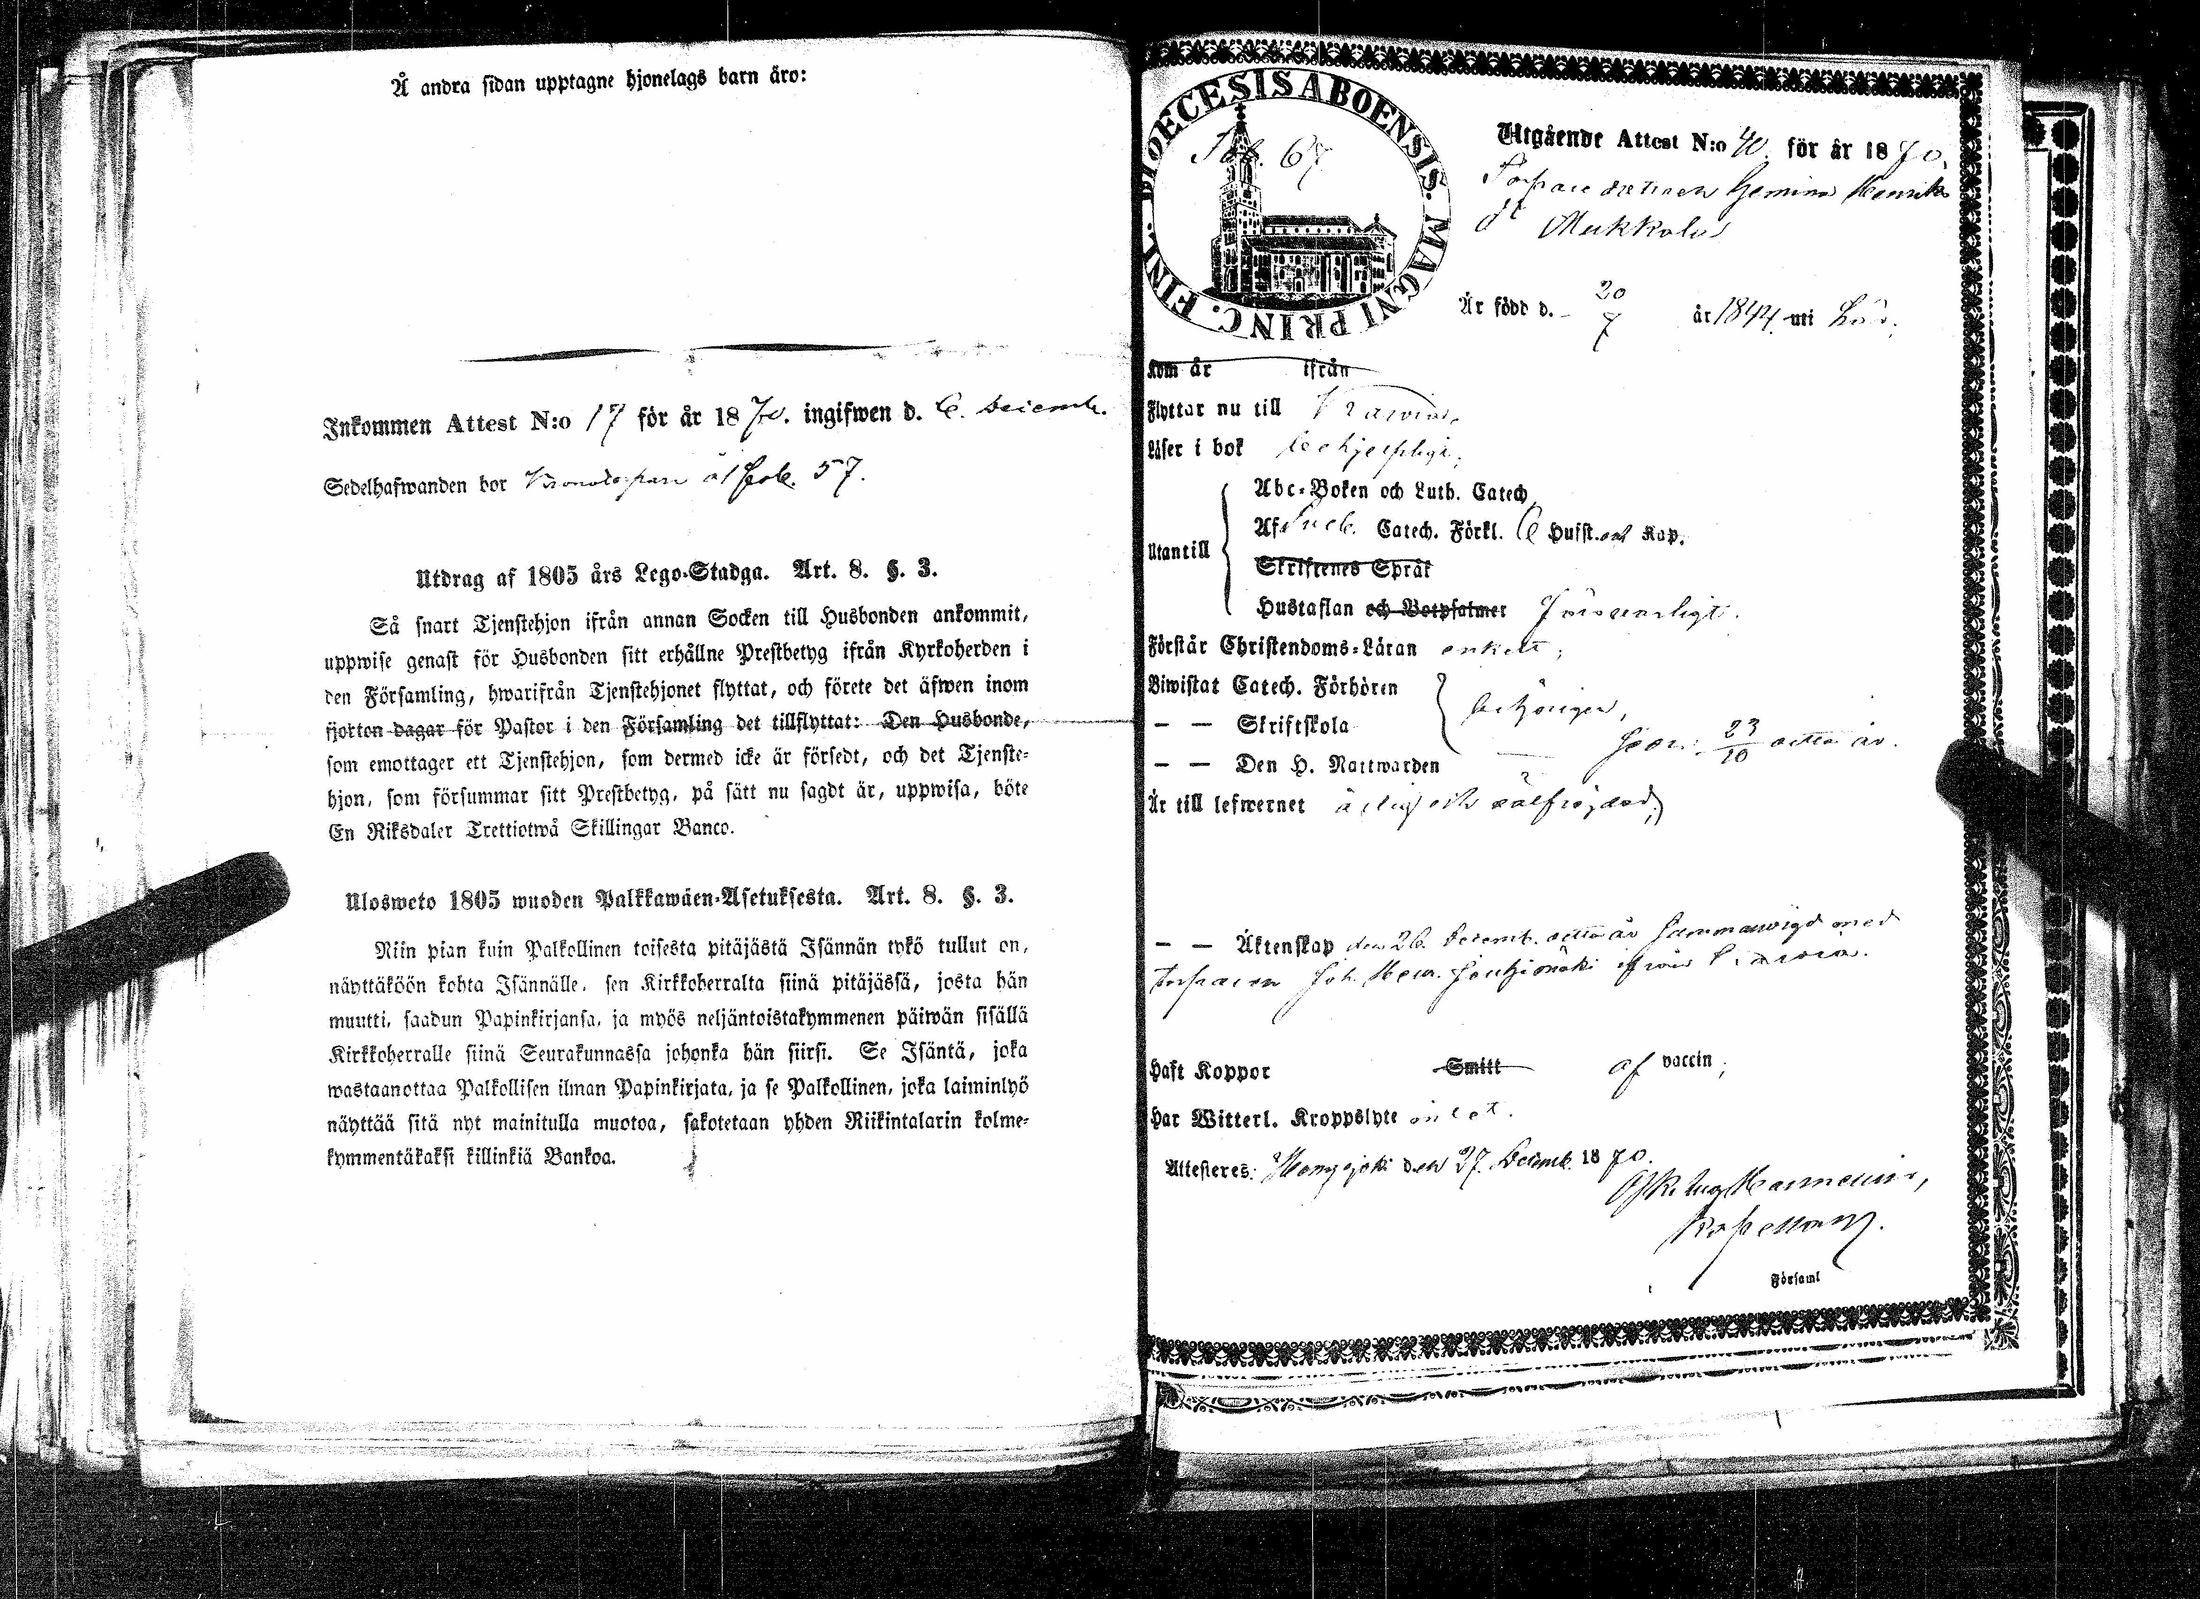 Å andra sidan upptagne hjonelags barn äro:
Inkommen Attest N:o 17 för år 1870. ingifwen d. 6. Decemb.
Sedelhafwanden bor Kronotorpare å fol. 57.
Utdrag af 1805 års Lego-Stadga. Art. 8. §. 3.
Så snart Tjenstehjon ifrån annan Socken till Husbonden ankommit,
uppwise genast för Husbonden sitt erhållne Prestbetyg ifrån Kyrkoherden i
den Församling, hwarifrån Tjenstehjonet flyttat, och förete det äfwen inom
fjorton dagar för Pastor i den Församling det tillflyttat: Den Husbonde,
som emottager ett Tjenstehjon, som dermed icke är försedt, och det Tjenste-
hjon, som försummar sitt Prestbetyg, på sätt nu sagdt är, uppwisa, böte
En Riksdaler Trettiotwå Skillingar Banco.
Ulosweto 1805 wuoden Palkkawäen-Asetuksesta. Art. 8. §. 3.
Niin pian kuin Palkollinen toisesta pitäjästä Isännän tykö tullut on,
näyttäköön kohta Isännälle, sen Kirkkoherralta siinä pitäjässä, josta hän
muutti, saadun Papinkirjansa, ja myös neljäntoistakymmenen päiwän sisällä
Kirkkoherralle siinä Seurakunnassa johonka hän siirsi. Se Isäntä, joka
wastaanottaa Palkollisen ilman Papinkirjata, ja se Palkollinen, joka laiminlyö
näyttää sitä nyt mainitulla muotoa, sakotetaan yhden Riikintalarin kolme-
kymmentäkaksi killinkiä Bankoa.
DIOECESIS ABOENSIS. MAGNI PRINC. FINL.
Fol. 67
Utgående Attest N:o 40. för år 1870.
Torpare dottren Gemina Henriks
dr Mukkala
Är född d. 20/7 år 1844. uti
Kom år ifrån
Flyttar nu till
Läser i bok behjelpligt;
Abc-Boken och Luth. Catech
Utantill
Af Sveb. Catech. Förkl. 6 Hufst. och Kap.
Skriftenes Språk
Hustaflan och Botpsalmer försvarligt.
Förstår Christendoms-Läran enkelt;
Biwistat Catech. Förhören
behörigen,
— — Skriftskola
sedn. 23/10 detta år.
— — Den H. Nattwarden
Är till lefwernet ärlig och välfrejdad;
— — Äktenskap den 26. Decemb. detta år sammanvigd med
torparen Joh. Henr. ifrån
Haft Koppor Smitt af vaccin;
Har Witterl. Kroppslyte intet.
Attesteres: Hongojoki den 27. Decemb. 1870.
Kapellan.
Församl